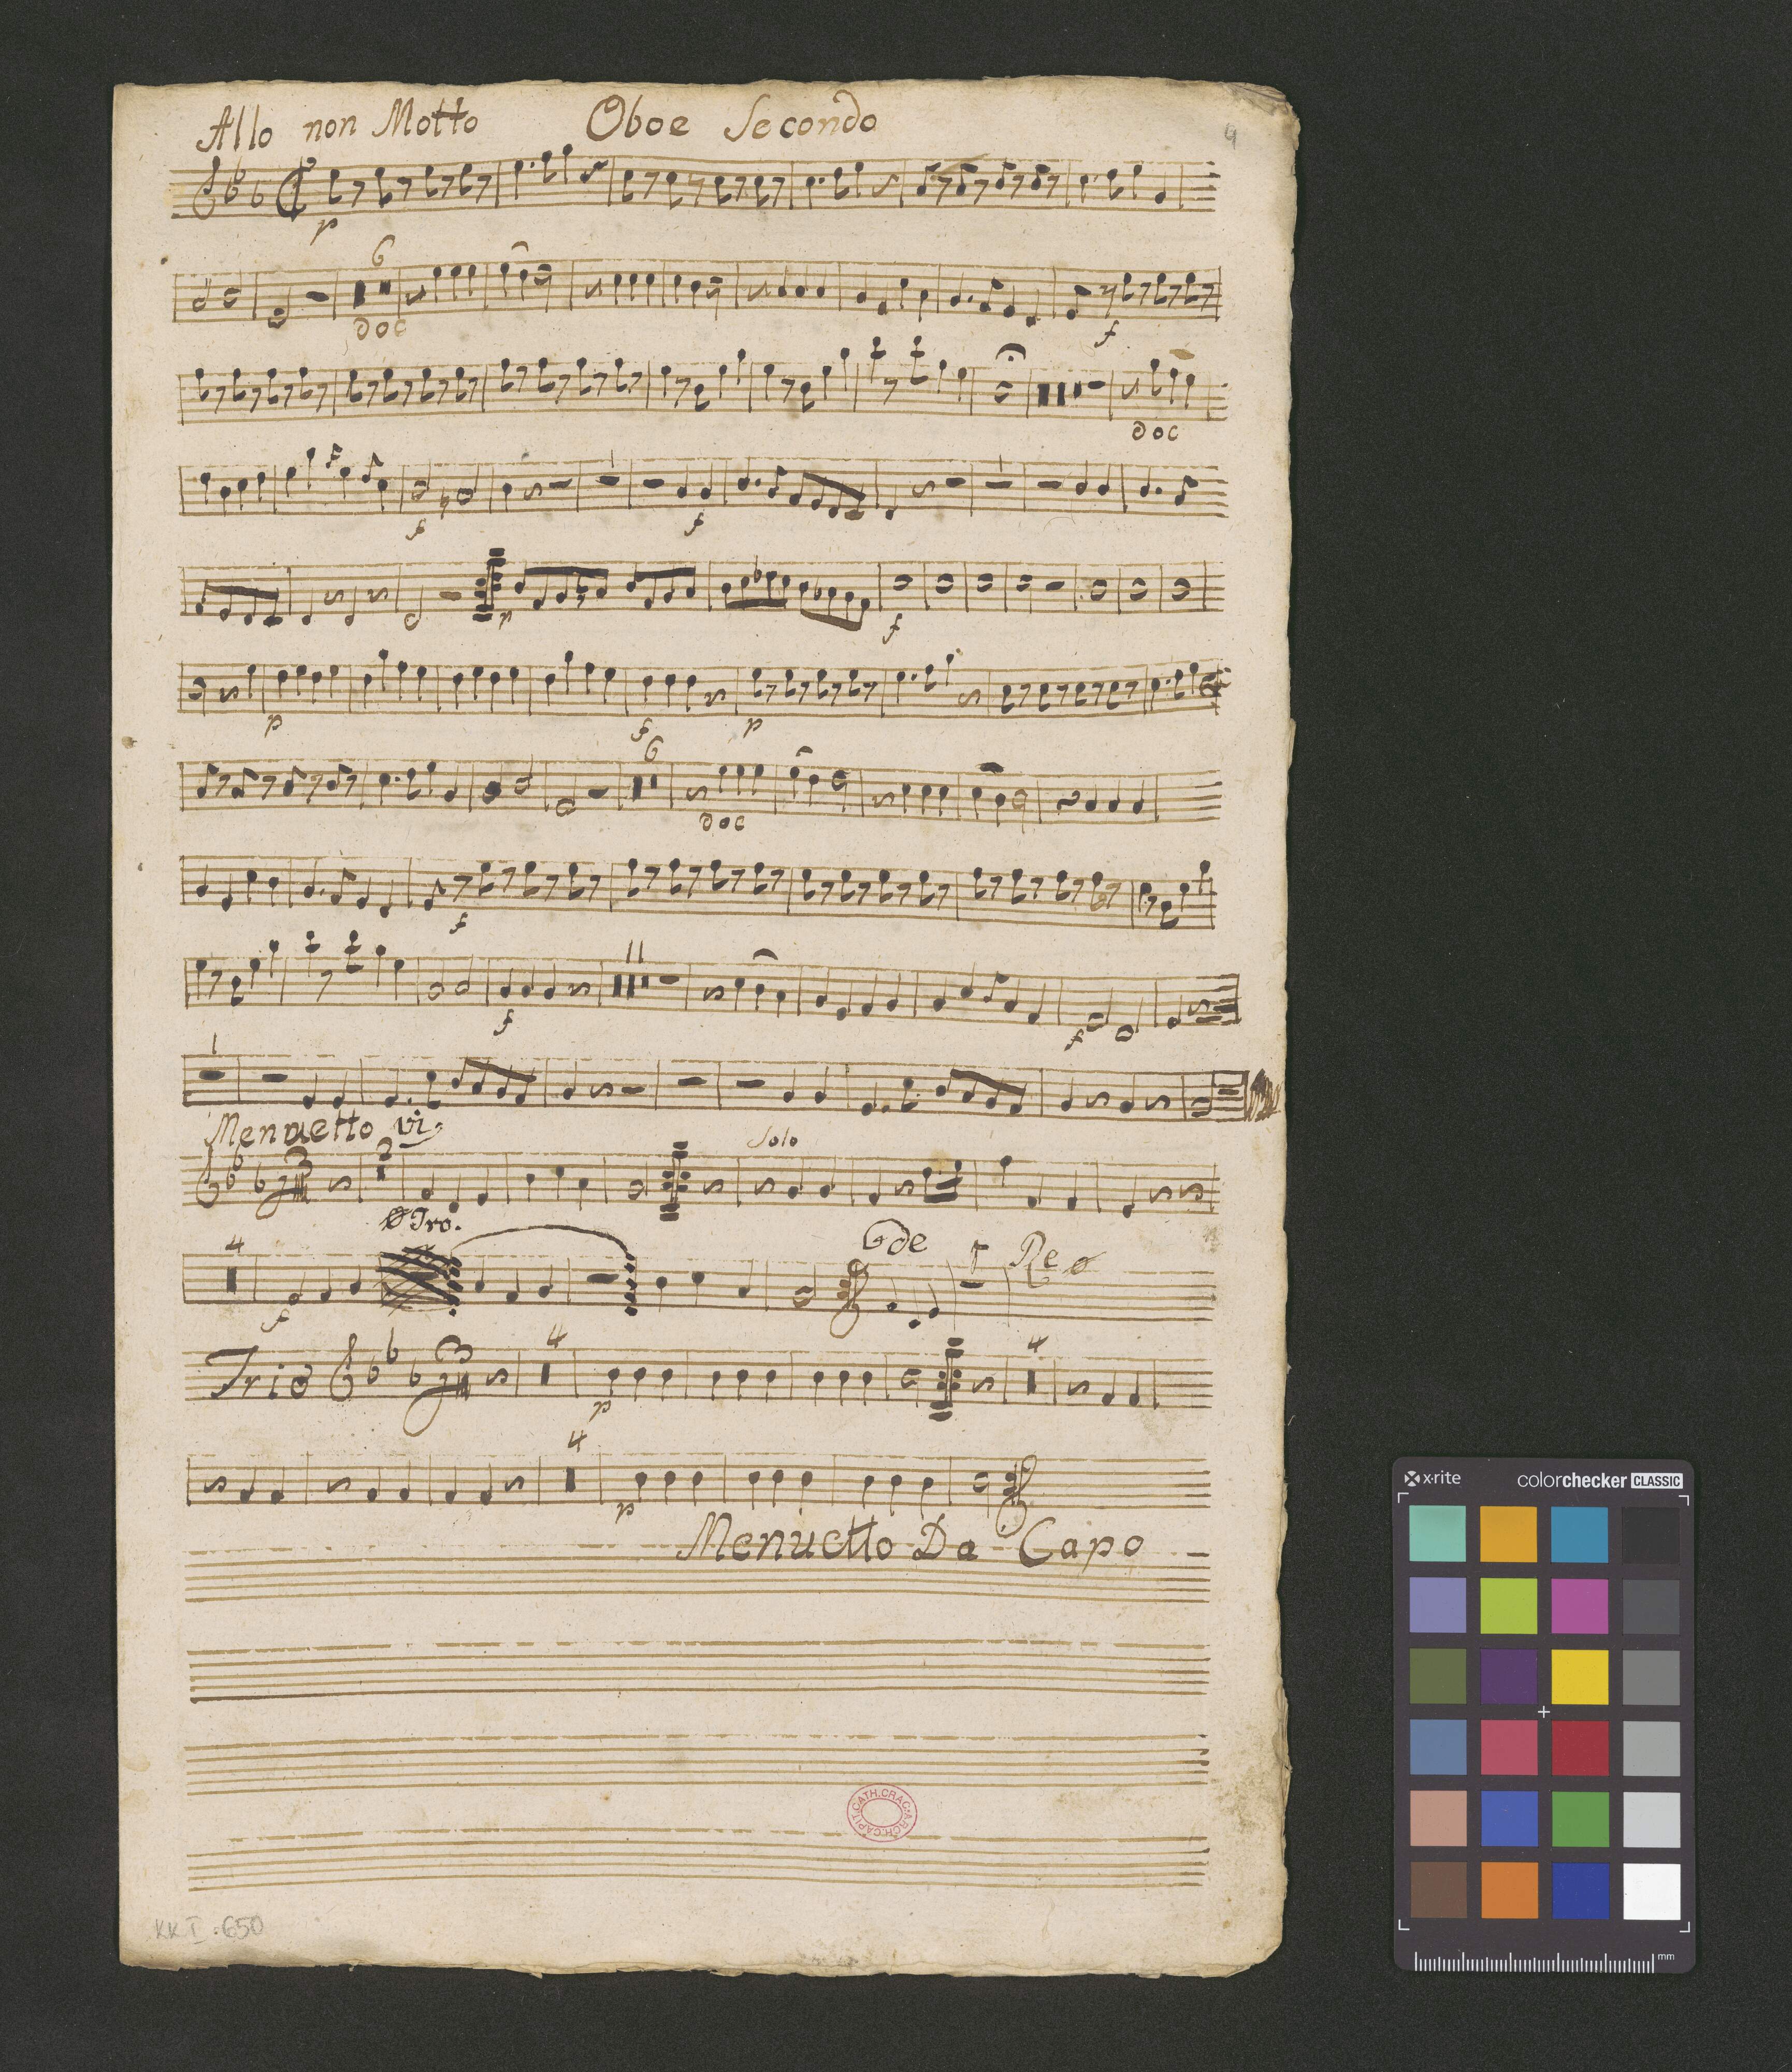 Allo non Motto Oboe Secondo
4
p
6
doc
f
doc
f
f
p
f
p
f
p
6
doc
f
11
f
f
1
Menuetto vi:
3
2
Solo
4
Tro.
f
Gde
Trio
3
4
p
4
4
p
Menuetto Da Capo
ARCH.CAPIT.CATH.CRAC
KK I.650
x-rite colorchecker CLASSIC
mm